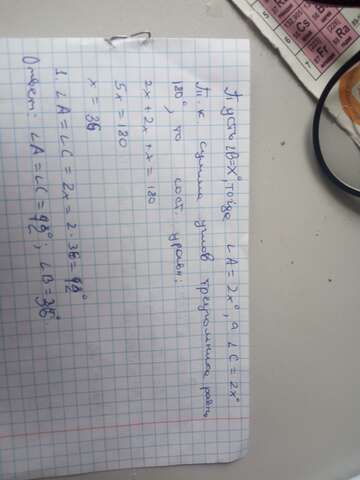 Пусть ∠B=x°, тогда ∠A = 2x°, а ∠C = 2x°
Т.к. сумма углов треугольника равна
180°, то сост. уравн.:
2x + 2x + x = 180
5x = 180
x = 36
1. ∠A = ∠C = 2x = 2·36 = 72°
Ответ: ∠A = ∠C = 72°; ∠B = 36°
Cs
Ba
Fr
Ra